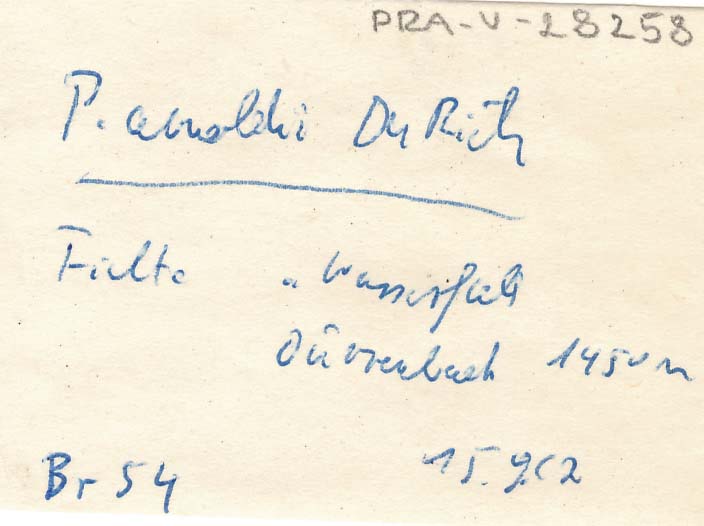 PRA-V-28258
P. arnoldii Du Rietz
Fichte
Wasserfall
Dürrenbach 1450 m
Br 54
15.9.62